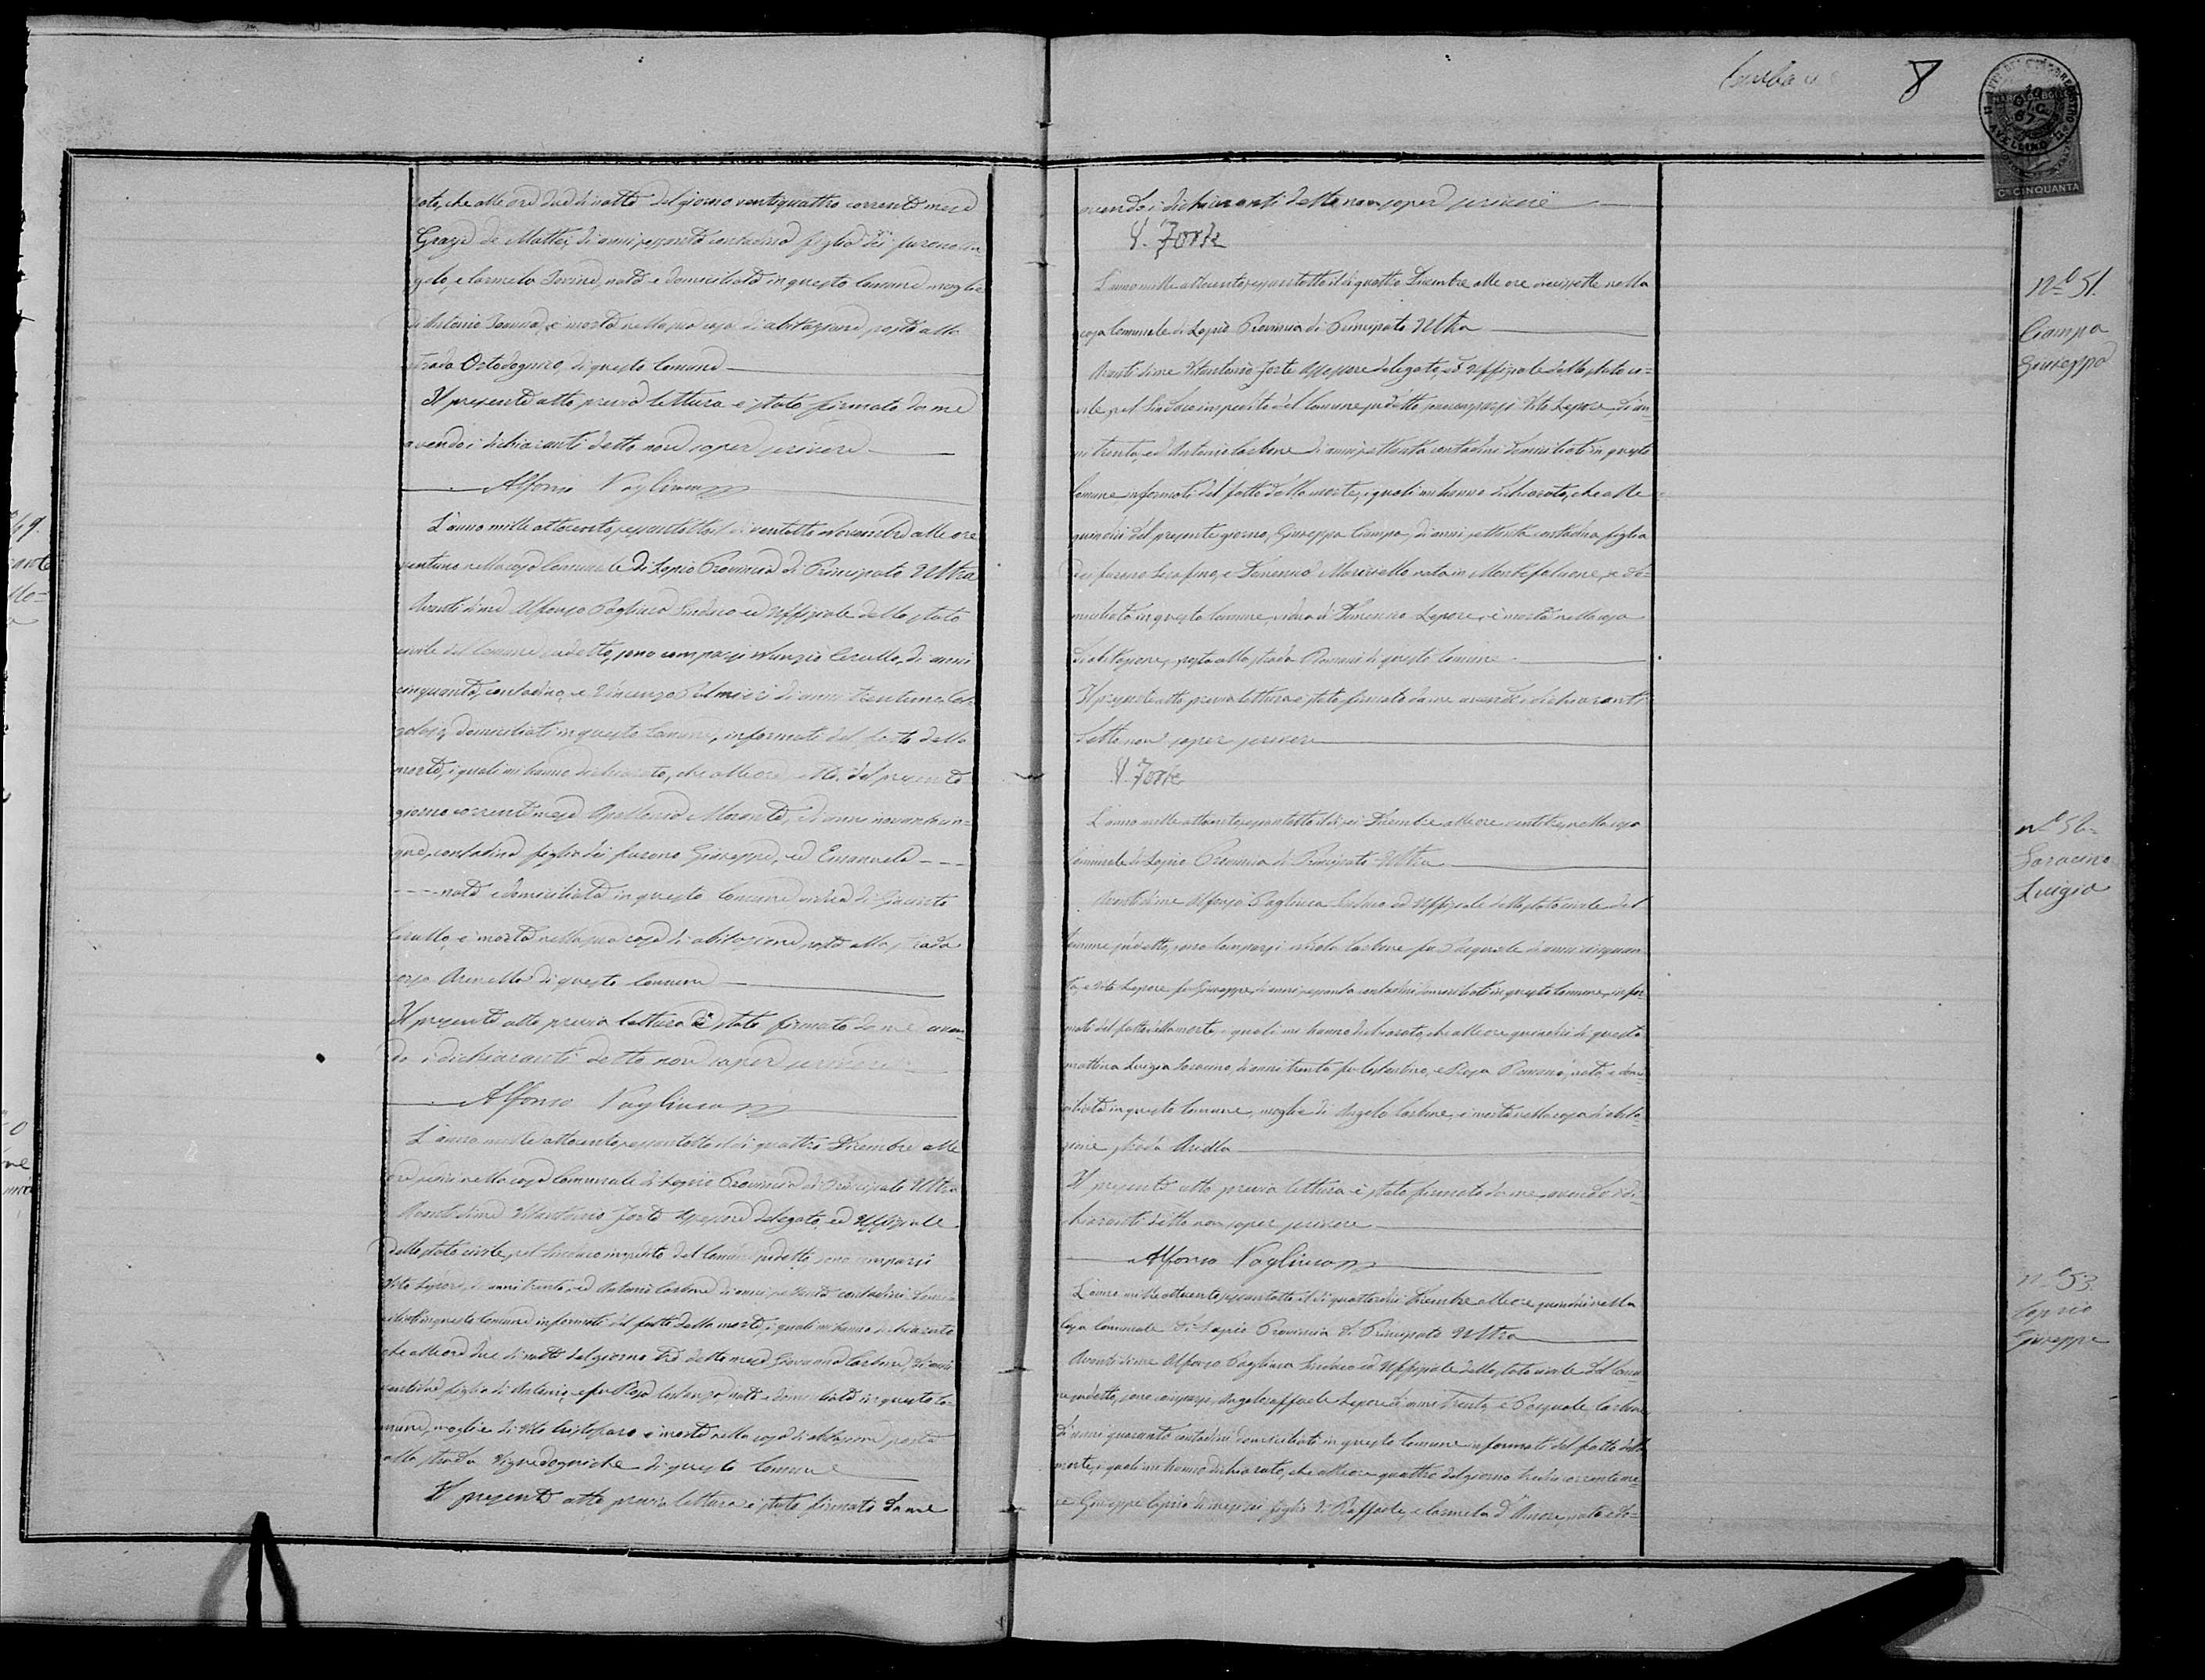 rato, che alle ore due di notte del giorno ventiquattro corrente mese
Grazia de Mattei, di anni sessanta contadina figlia dei furono An-
gelo, e Carmela Iovine, nata e domiciliata in questo Comune moglie
di Antonio è morta nella sua casa di abitazione posta alla
strada Ortodognico, di questo Comune
Il presente atto previa lettura è stato firmato da me
avendo i dichiaranti detto non saper scrivere
Alfonso Pagliuca
L'anno mille ottocento sessantotto il dì ventotto Novembre alle ore
ventuno nella casa Comunale di Lapio Provincia di Principato Ultra
Avanti di me Alfonso Pagliuca Sindaco ed Uffiziale dello stato
civile del Comune sudetto, sono comparsi Nunzio Cerullo, di anni
cinquanta, contadino, e Vincenzo Palmieri di anni trentuno Cal-
zolajo, domiciliati in questo Comune, informati del fatto della
morte, i quali mi hanno dichiarato, che alle ore del presente
giorno corrente mese Apollonia Morante, di anni novantacin-
que, contadina figlia dei furono Giuseppe, ed Emanuela
nata e domiciliata in questo Comune vedova di
Cerullo, è morta nella sua casa di abitazione, posta alla strada
di questo Comune
Il presente atto previa lettura è stato firmato da me aven-
do i dichiaranti detto non saper scrivere
Alfonso Pagliuca
L'anno mille ottocento sessantotto il dì quattro Dicembre alle
ore sedici nella casa Comunale di Lapio Provincia di Principato Ultra
Avanti di me Vitantonio Forte Assessore delegato, ed Uffiziale
dello stato civile, pel Sindaco impedito del Comune sudetto sono comparsi
Vito Lepore, di anni trenta, ed Antonio Carbone di anni settanta contadini domi-
ciliati in questo Comune informati del fatto della morte, i quali mi hanno dichiarato
che alle ore due di notte del giorno tre detto mese Giovanna Carbone, di anni
ventidue figlia di Antonio, e fu Rosa Costanzo, nata e domiciliata in questo Co-
mune, moglie di Vito Cristofaro è morta nella casa di abitazione posta
alla strada di questo Comune
Il presente atto previa lettura è stato firmato da me
8
avendo i dichiaranti detto non saper scrivere
V. Forte
Nº 51.
Ciampa
Giuseppa
L'anno mille ottocento sessantotto il dì quattro Dicembre alle ore diecissette nella
casa Comunale di Lapio Provincia di Principato Ultra
Avanti di me Vitantonio Forte Assessore delegato, ed Uffiziale dello stato ci=
vile, pel Sindaco impedito del Comune sudetto sono comparsi Vito Lepore, di an-
ni trenta, ed Antonio Carbone di anni settanta contadini domiciliati in questo
Comune informati del fatto della morte, i quali mi hanno dichiarato, che alle
quindici del presente giorno, Giuseppa Ciampa, di anni settanta contadina figlia
dei furono Serafino, e Domenica Maruiello nata in Montefalcione, e do=
miciliata in questo Comune, vedova di Domenico Lepore, è morta nella casa
di abitazione, posta alla strada Romani di questo Comune
Il presente atto previa lettura è stato firmato da me avendo i dichiaranti
detto non saper scrivere
V. Forte
Nº 52=
Saracino
Luigia
L'anno mille ottocento sessantotto il dì sei Dicembre alle ore ventitre, nella casa
Comunale di Lapio Provincia di Principato Ultra
Avanti di me Alfonso Pagliuca Sindaco ed Uffiziale dello stato civile del
Comune sudetto, sono comparsi Nicola Carbone fu Pasquale di anni cinquan
ta, e Vito Lepore fu Giuseppe, di anni sessanta contadini domiciliati in questo Comune, infor
mati del fatto della morte, i quali mi hanno dichiarato, che alle ore quindici di questa
mattina Luigia Saracino, di anni trenta fu Costantino, e Rosa Romano, nata, e domi-
ciliata in questo Comune, moglie di Angelo Carbone, è morta nella casa di abita-
zione strada Arilla
Il presente atto previa lettura è stato firmato da me, avendo i di=
chiaranti detto non saper scrivere
Alfonso Pagliuca
Nº 53.
Caprio
Giuseppe
L'anno mille ottocento sessantotto il dì quattordici Dicembre alle ore quindici nella
Casa Comunale di Lapio Provincia di Principato Ultra
Avanti di me Alfonso Pagliuca Sindaco ed Uffiziale dello stato civile del Comu
ne sudetto, sono comparsi, Angeloraffaele Lepore di anni trenta, e Pasquale Carbone
di anni quaranta contadini domiciliati in questo Comune informati del fatto della
morte, i quali mi hanno dichiarato, che alle ore quattro del giorno tredici corrente me
se Giuseppe Caprio di mesi sei figlio di Raffaele, e Carmela d'Amore, nato e do=